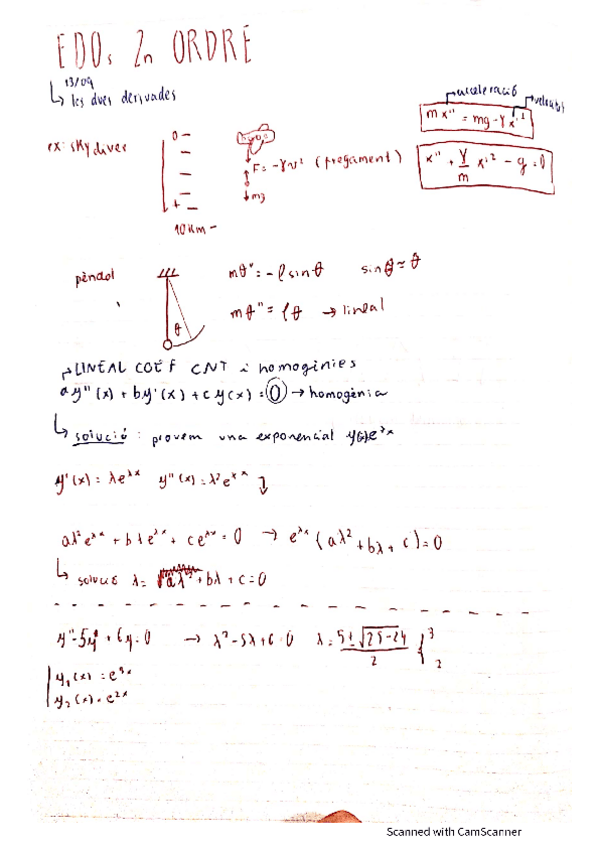 EDOs 2n ORDRE
13/09
↳ les dues derivades
acceleració
velocitat
mx'' = mg - γx'²
ex: skydiver
0 -
F = -γv² (fregament)
x'' + γ/m x'² - g = 0
mg
+ -
10Km -
pèndol
mθ'' = -l sinθ    sinθ ≈ θ
mθ'' = lθ → lineal
θ
LINEAL COEF CNT i homogènies
ay''(x) + by'(x) + cy(x) = 0 → homogènia
↳ solució: provem una exponencial y(x)e^λx
y'(x) = λe^λx    y''(x) = λ²e^λx
aλ²e^λx + bλe^λx + ce^λx = 0 → e^λx (aλ² + bλ + c) = 0
↳ solució λ = aλ² + bλ + c = 0
y'' - 5y' + 6y = 0 → λ² - 5λ + 6 = 0    λ = 5 ± √25-24 / 2 { 3 2
y₁(x) = e^3x
y₂(x) = e^2x
Scanned with CamScanner